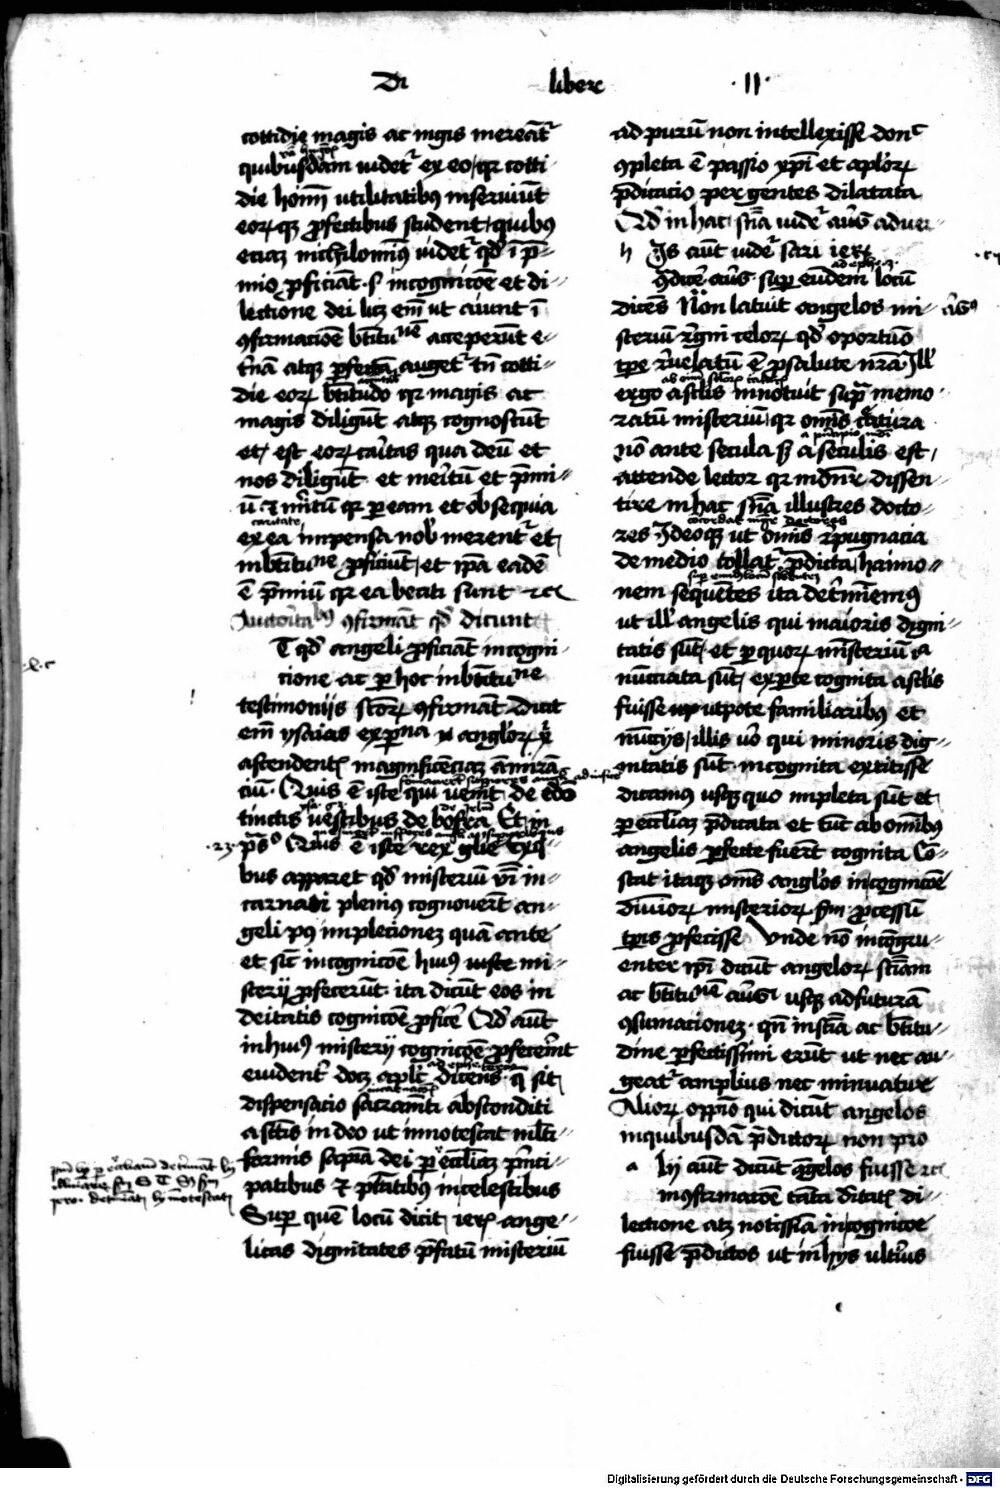 Di liber ·II·
cottidie magis ac mgis mereāt᷑
quibusdam uidet᷑ ex eo qr cotti
die homī utilitatibꝰ inseruiūt
eoꝝ qꝫ ꝓfectibus student quibus
etiaꝫ nichilominꝰ uidet᷑ qđ ī p̄
mio ꝓficiāt · s· incognicōe et di
lectione dei licꝫ em̄ ut aiunt ī
ꝯfirmacōe btītuⁿᵉ acceperūt e
t̄nā atqꝫ ꝑfectā auget᷑ tn̄ cotti
die eoꝝ btītudo qr magis ac
magis diligūt atqꝫ cognoscūt
et est eoꝝ cāitas qua deū et
nos diligūt · et meītū et p̄mi
ū · meītū qr ꝑ eam et obsequia
caritate
ex ea impensa nobˢ merent᷑ et
inbtītuⁿᵉ ꝓficiūt et ip̄a eadē
ē p̄miū qr ea beati sunt
Auctoritatibꝰ ꝯfirmāt qđ dicunt
qđ angeli ꝓficiāt incogni
cione ac ꝑ hoc inbtītuⁿᵉ
testimonijs sctoꝝ ꝯfirmāt Dicit
em̄ ysaias ex ꝑsonaⁿᵃ angloꝝ
ascendentˢ magnificenciaꝫ āmirā
ciū · Quis ē iste qui uenit de edō
tinctis uestibus de bosra Et in
·23· pˢ Quis ē iste rex glīe Ex qⁱ
bus apparet qđ misteriū ūi in
carnati plenius cognouerūt an
geli pꝰ impletionez quā ante
et sic̄ incognicōe huiꝰ mi
sterij ꝓfecerūt · ita dicūt eos in
deitatis cognicōe ꝓficē Qđ aūt
in huiꝰ misterij cognicōe ꝓfecerīt
euident᷑ docꝫ aplˢ dicens · q̄ sit
dispensacio sacramēti absconditi
a sclis in deo ut innotescat mlti
formis sapīa dei ꝑ eccliaꝫ pn̄ci
patibus ⁊ ptātibꝰ incelestibus
Suꝑ quē locū dicit ierˢ ange
licas dignitates p̄fatū misteriū
ad purū non intellexisse donᶜ
ꝯpleta ē passio xp̄i et aploꝝ
p̄dicacio per gentes dilatata
Qđ in hac sn̄ā uidet᷑ aūg aduer
Is aūt uidet᷑ sāri ierˢ
ꝯdicē auḡ · suꝑ eundem locū
dicēs Non latuit angelos mi
steriū rēgni celoꝝ qđ oportuō
tp̄e reuelatū ē ꝓ salute nrā Ill̄
ergo a sclis innotuit supͣ memo
ratū misteriū qr om̄is c̄atura
nō ante secula sꝫ a seculis est
attende lector qr dissen
tire in hac sn̄ā illustres docto
res Ideoqꝫ ut om̄is repugnācia
de medio tollat᷑ p̄dicta haimo
nem sequētes ita determinemꝰ
ut ill̄ angelis qui maioris digni
tatis sūt et ꝑ quoꝝ ministeriū
nūciata sūt ex ꝑte cognita a sclis
fuisse utpote familiaribꝰ et
nūcijs illis uō qui minoris dig
nitatis sūt · incognita extitisse
dicamus usqꝫ quo impleta sūt et
ꝑ eccliaꝫ p̄dicata et tūc ab om̄ibꝰ
angelis ꝑfecte fuerūt cognita Cō
stat itaqꝫ om̄s anglos incognicōe
diuinoꝝ misterioꝝ ꝓcessū
tp̄is ꝓfecisse Unde nō incōgru
enter ip̄i dicūt angeloꝝ sciam
ac btītuⁿᵉ aūgeri usqꝫ ad futurā
ꝯsumacionez · qn̄ in sciā ac btītu
dine ꝑfectissimi erūt ut nec au
geat᷑ amplius nec minuatur
Alioꝝ oppīo qui dicūt angelos
in quibusdā p̄dictoꝝ non pro
Hij aūt dicūt angelos fuisse
in ꝯfirmacōe tāta di
lectione atqꝫ notissīa incognicōe
fuisse p̄ditos ut in hijs ulterius
Digitalisierung gefördert durch die Deutsche Forschungsgemeinschaft - DFG